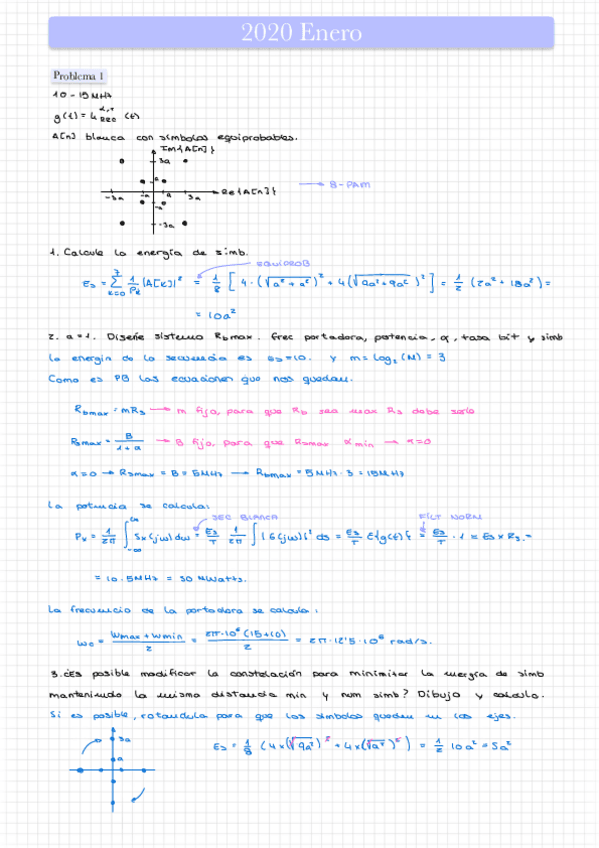 2020 Enero
Problema 1
10 - 15 MHz
g(t) = h_REC^α,T (t)
A[n] blanca con símbolos equiprobables.
Im{A[n]}
3a
a
-3a -a a 3a Re{A[n]}
-a
-3a
→ 8-PAM
1. Calcule la energía de simb.
EQUIPROB
Es = Σ_{k=0}^{7} 1/Pk |A[k]|² = 1/8 [4·(√(a²+a²))² + 4(√(9a²+9a²))²] = 1/2 (2a² + 18a²) =
= 10a²
2. a=1. Diseñe sistema Rbmax. frec portadora, potencia, α, tasa bit y simb
La energía de la secuencia es Es=10. y m = log₂(M) = 3
Como es PB las ecuaciones que nos quedan.
Rbmax = mRs → m fijo, para que Rb sea max Rs debe serlo
Rsmax = B/(1+α) → B fijo, para que Rsmax αmin → α=0
α=0 → Rsmax = B = 5MHz → Rbmax = 5MHz·3 = 15MHz
La potencia se calcula:
SEC BLANCA
FILT NORM
Px = 1/2π ∫_{-∞}^{∞} Sx(jω)dω = Es/T 1/2π ∫|G(jω)|² dω = Es/T ε{g(t)} = Es/T · 1 = Es × Rs =
= 10·5MHz = 50 MWatts.
La frecuencia de la portadora se calcula:
ωc = (ωmax + ωmin)/2 = 2π·10⁶(15+10)/2 = 2π·12'5·10⁶ rad/s.
3. ¿Es posible modificar la constelación para minimizar la energía de simb
manteniendo la misma distancia min y num simb? Dibujo y calculo.
Si es posible, rotandola para que los símbolos queden en los ejes.
3a
a
Es = 1/8 (4×(√9a²)² + 4×(√a²)²) = 1/2 10a² = 5a²